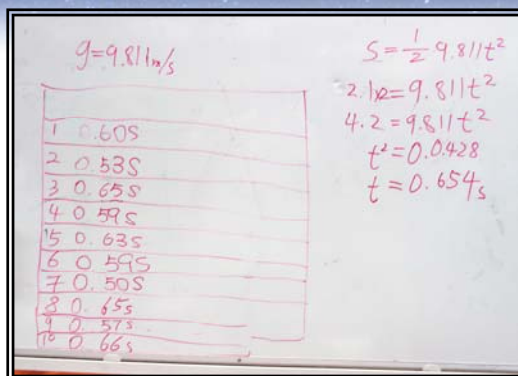 g=9.811m/s
1 0.60s
2 0.53s
3 0.65s
4 0.59s
5 0.63s
6 0.59s
7 0.50s
8 0.65s
9 0.57s
10 0.66s
S=1/2 9.811t²
2.1×2=9.811t²
4.2=9.811t²
t²=0.0428
t=0.654s